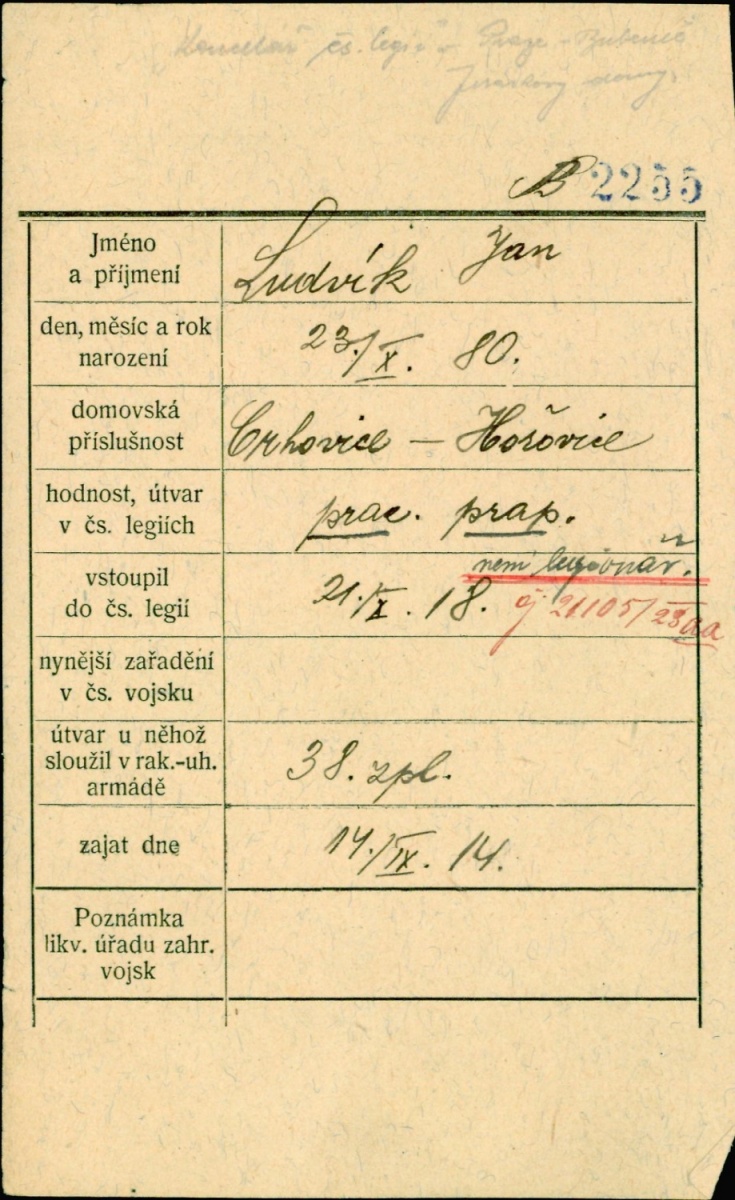 Kancelář čs. legií v Praze - Bubenči
Jiráskovy domy.
B 2255
Jméno
a příjmení
Ludvík Jan
den, měsíc a rok
narození
23./X. 80.
domovská
příslušnost
Crhovice – Hořovice
hodnost, útvar
v čs. legiích
prac. prap.
není legionář.
vstoupil
do čs. legií
21./X. 18.
čj 21105/23
nynější zařadění
v čs. vojsku
útvar u něhož
sloužil v rak.-uh.
armádě
38. zpl.
zajat dne
14./IX. 14.
Poznámka
likv. úřadu zahr.
vojsk